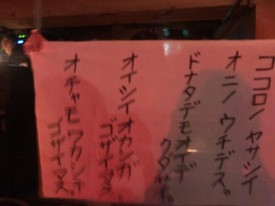 ココロノヤサシイ
オニノウチデス。
ドナタデモオイデ
クダサイ。
オイシイオカシガ
ゴザイマス。
オチャモワカシテ
ゴザイマス。